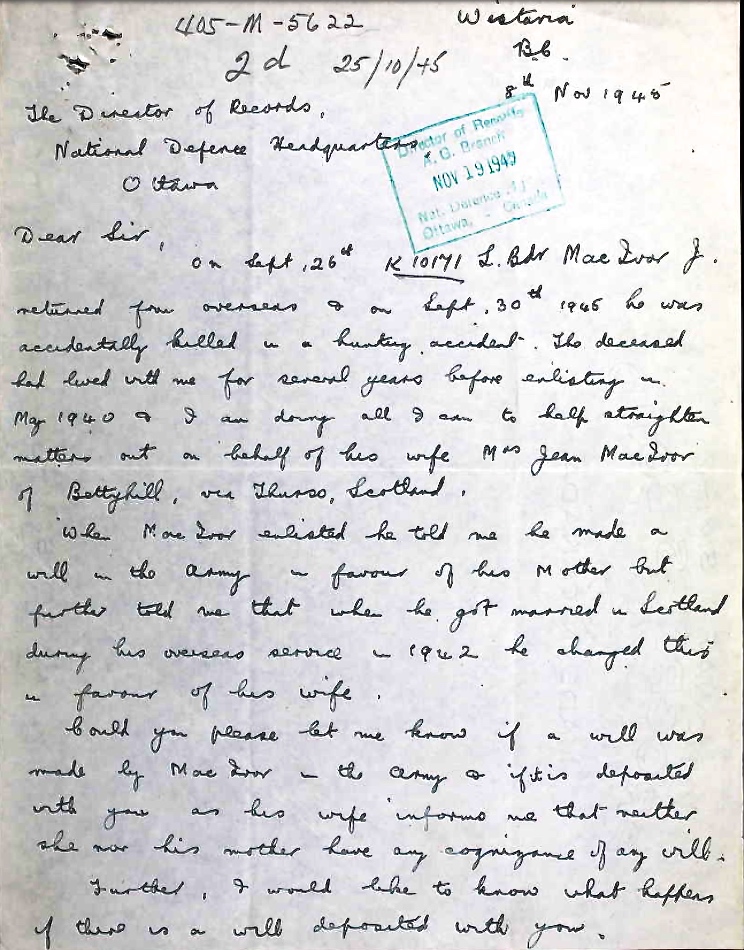 405-M-5622
Wistaria
B.C.
2d 25/10/45
8th Nov 1945
The Director of Records,
National Defence Headquarters,
Ottawa
Director of Records
A. G. Branch
NOV 19 1945
Nat. Defence
Ottawa, - Canada
Dear Sir,
On Sept, 26th K 10171 L. Bdr MacIvor J.
returned from overseas & on Sept, 30th 1945 he was
accidentally killed in a hunting accident. The deceased
had lived with me for several years before enlisting in
May 1940 & I am doing all I can to help straighten
matters out on behalf of his wife Mrs Jean MacIvor
of Bettyhill, via Thurso, Scotland.
When MacIvor enlisted he told me he made a
will in the Army in favour of his Mother but
further told me that when he got married in Scotland
during his overseas service in 1942 he changed this
in favour of his wife.
Could you please let me know if a will was
made by MacIvor in the Army & if it is deposited
with you as his wife informs me that neither
she nor his mother have any cognizance of any will.
Further, I would like to know what happens
if there is a will deposited with you.